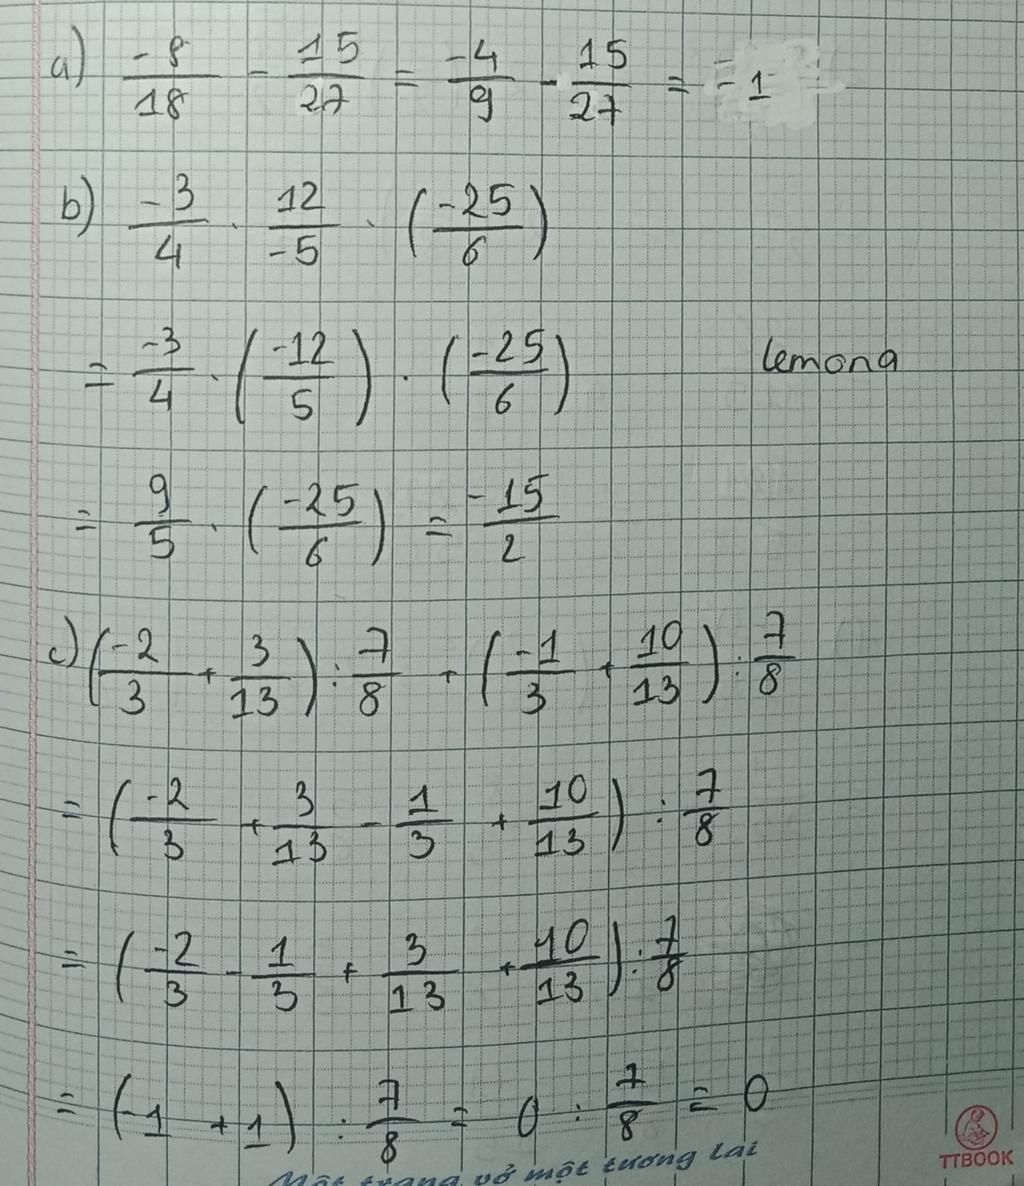 a) -8/18 - 15/27 = -4/9 - 15/27 = -1
b) -3/4 . 12/-5 . (-25/6)
= -3/4 . (-12/5) . (-25/6)
lemona
= 9/5 . (-25/6) = -15/2
c) (-2/3 + 3/13) : 7/8 + (-1/3 + 10/13) : 7/8
= (-2/3 + 3/13 - 1/3 + 10/13) : 7/8
= (-2/3 - 1/3 + 3/13 + 10/13) : 7/8
= (-1 + 1) : 7/8 = 0 : 7/8 = 0
Một trang vở một tương lai
TTBOOK